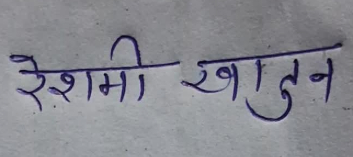 रेशमी खातुन